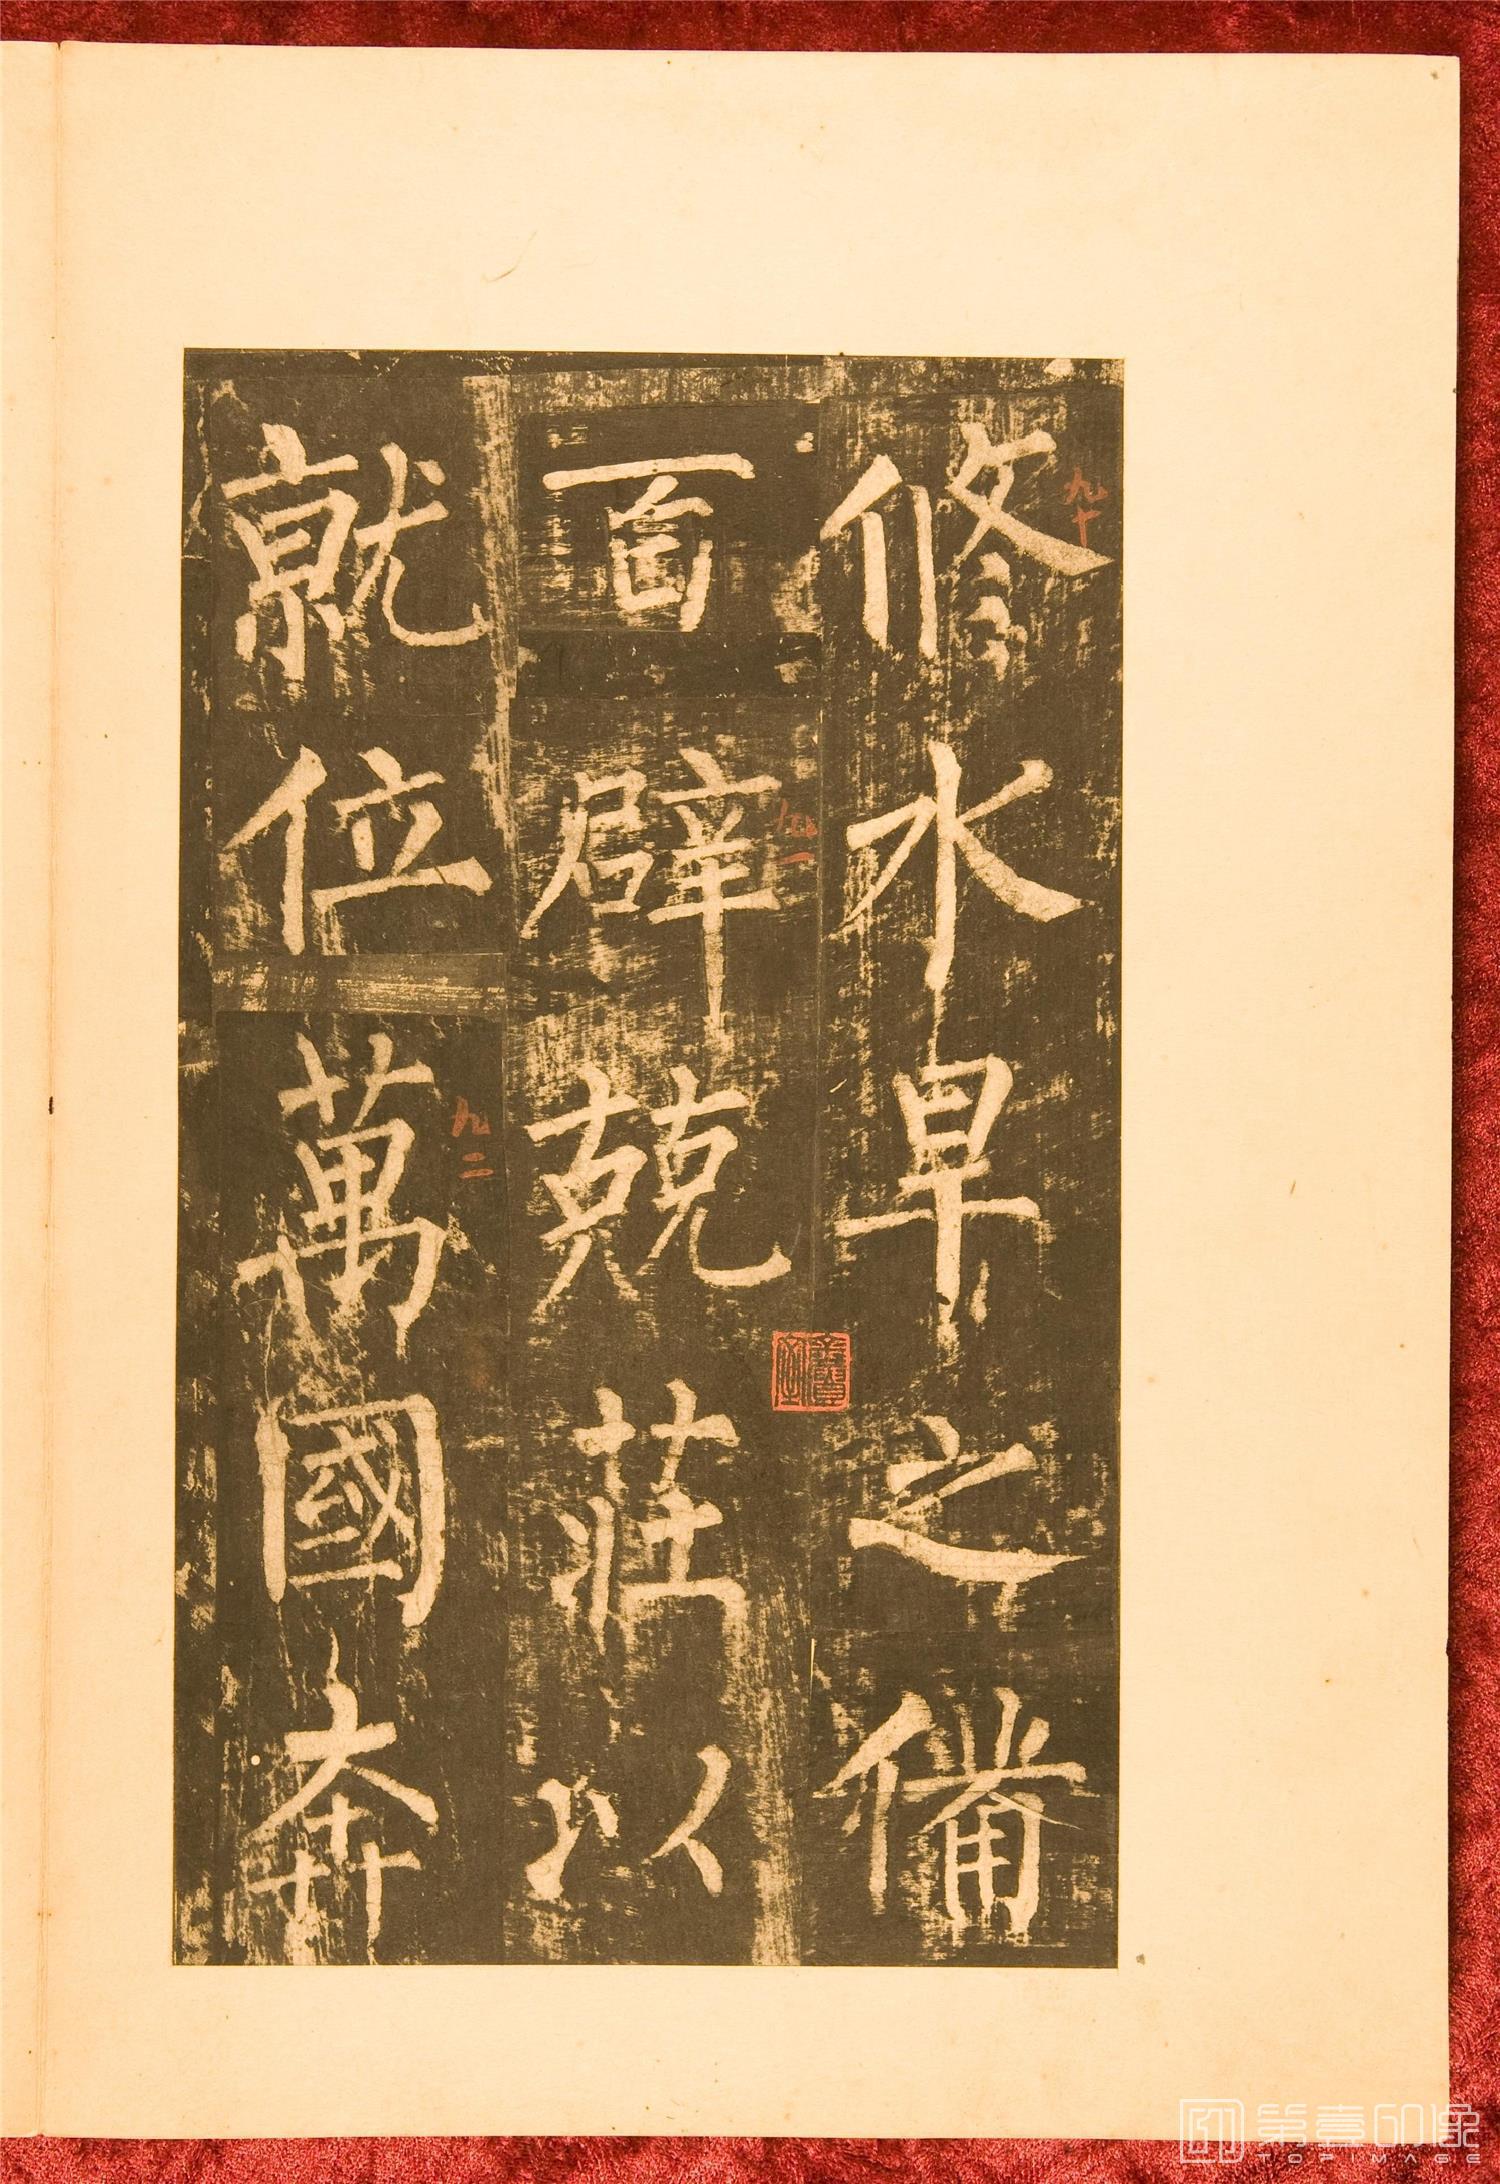 修水旱之備
百辟兢莊以
就位萬國奔
九十
九一
九二
第壹印像
TOPIMAGE